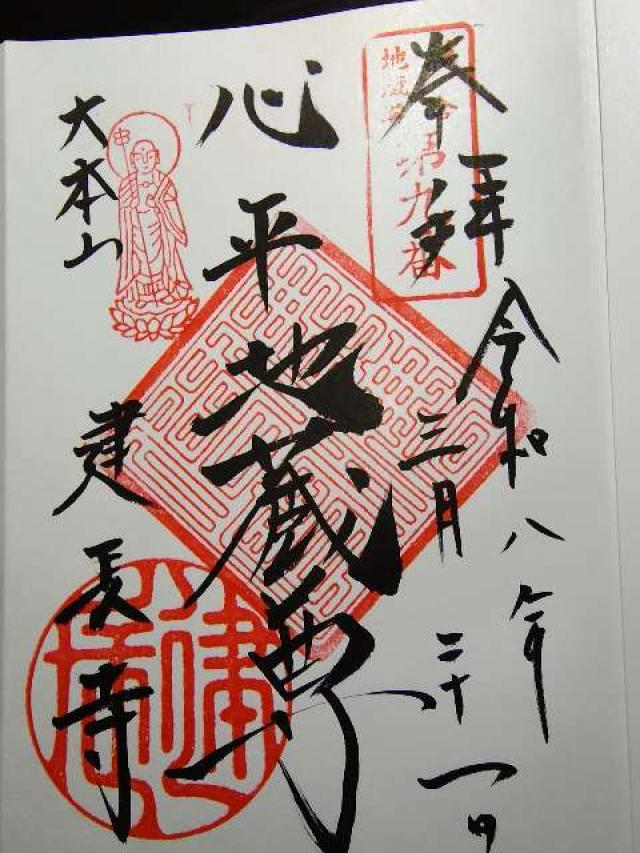 奉拝
第九番
令和八年
三月
二十一日
心平地蔵尊
大本山
建長寺